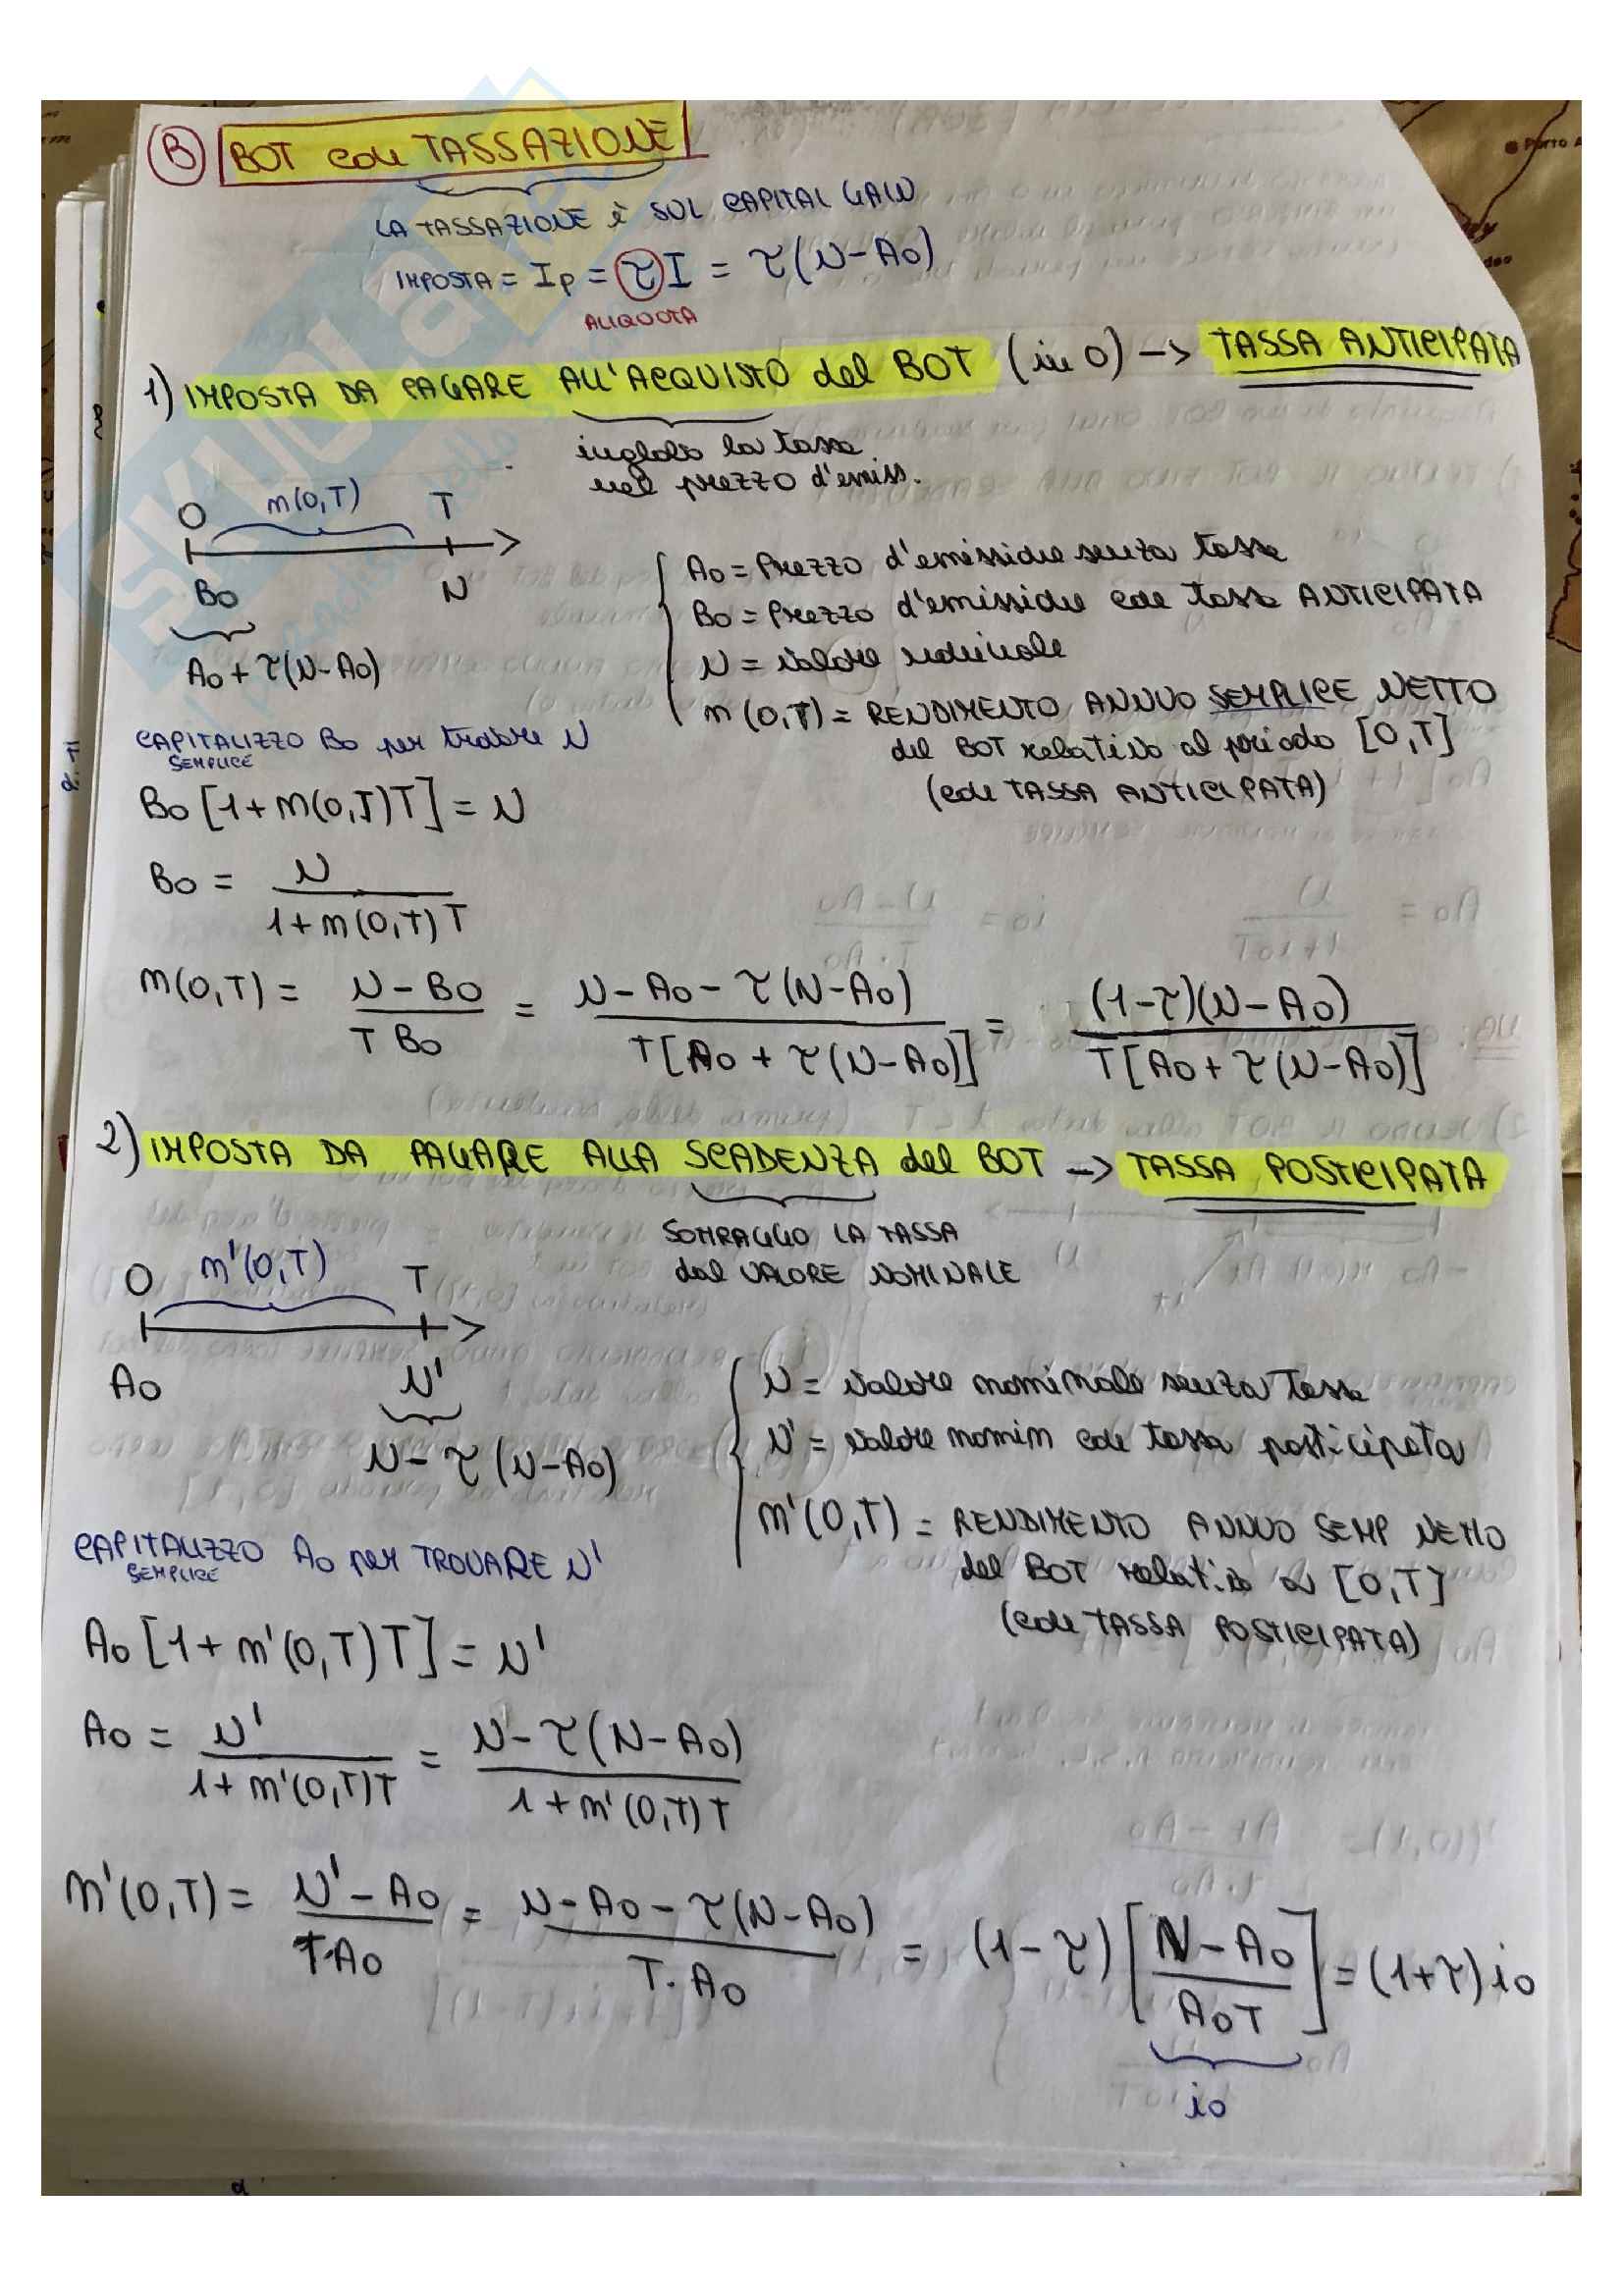 B BOT con TASSAZIONE
LA TASSAZIONE è SUL CAPITAL GAIN
IMPOSTA = Ip = τI = τ(N-A0)
ALIQUOTA
1) IMPOSTA DA PAGARE ALL'ACQUISTO del BOT (in 0) -> TASSA ANTICIPATA
inglobo la tassa
nel prezzo d'emiss.
0 m(0,T) T
B0 N
A0 + τ(N-A0)
A0 = Prezzo d'emissione senza tasse
B0 = Prezzo d'emissione con tassa ANTICIPATA
N = valore nominale
m(0,T) = RENDIMENTO ANNUO SEMPLICE NETTO
del BOT relativo al periodo [0,T]
(con TASSA ANTICIPATA)
CAPITALIZZO B0 per trovare N
SEMPLICE
B0 [1+m(0,T)T] = N
B0 = N / 1+m(0,T)T
m(0,T) = N-B0 / T B0 = N-A0-τ(N-A0) / T[A0+τ(N-A0)] = (1-τ)(N-A0) / T[A0+τ(N-A0)]
2) IMPOSTA DA PAGARE ALLA SCADENZA del BOT -> TASSA POSTICIPATA
SOTTRAGGO LA TASSA
dal VALORE NOMINALE
0 m'(0,T) T
A0 N'
N-τ(N-A0)
N = valore nominale senza tasse
N' = valore nomin con tassa posticipata
m'(0,T) = RENDIMENTO ANNUO SEMP NETTO
del BOT relativo a [0,T]
(con TASSA POSTICIPATA)
CAPITALIZZO A0 per TROVARE N'
SEMPLICE
A0 [1+m'(0,T)T] = N'
A0 = N' / 1+m'(0,T)T = N-τ(N-A0) / 1+m'(0,T)T
m'(0,T) = N'-A0 / T·A0 = N-A0-τ(N-A0) / T·A0 = (1-τ)[N-A0 / A0T] = (1+τ)i0
i0